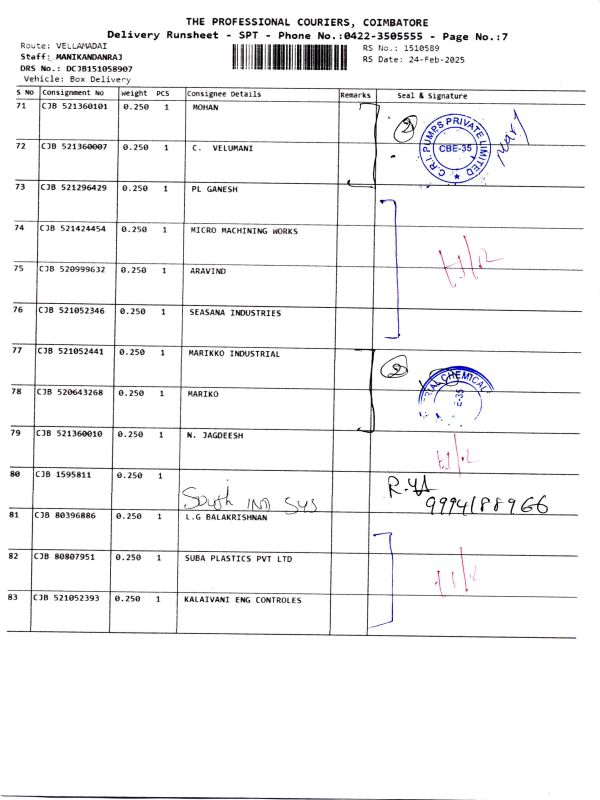 THE PROFESSIONAL COURIERS, COIMBATORE
Delivery Runsheet - SPT - Phone No.:0422-3505555 - Page No.:7
Route: VELLAMADAI
Staff: MANIKANDANRAJ
DRS No.: DCJB151058907
Vehicle: Box Delivery
RS No.: 1510589
RS Date: 24-Feb-2025
S NO Consignment No Weight PCS Consignee Details Remarks Seal & Signature
71 CJB 521360101 0.250 1 MOHAN
72 CJB 521360007 0.250 1 C. VELUMANI
2
C.R.I. PUMPS PRIVATE LIMITED
CBE-35
73 CJB 521296429 0.250 1 PL GANESH
74 CJB 521424454 0.250 1 MICRO MACHINING WORKS
75 CJB 520999632 0.250 1 ARAVIND
76 CJB 521052346 0.250 1 SEASANA INDUSTRIES
77 CJB 521052441 0.250 1 MARIKKO INDUSTRIAL
78 CJB 520643268 0.250 1 MARIKO
2
CHEMICAL
E-35
79 CJB 521360010 0.250 1 N. JAGDEESH
80 CJB 1595811 0.250 1
South IND SYS
9994188966
81 CJB 80396886 0.250 1 L.G BALAKRISHNAN
82 CJB 80807951 0.250 1 SUBA PLASTICS PVT LTD
83 CJB 521052393 0.250 1 KALAIVANI ENG CONTROLES